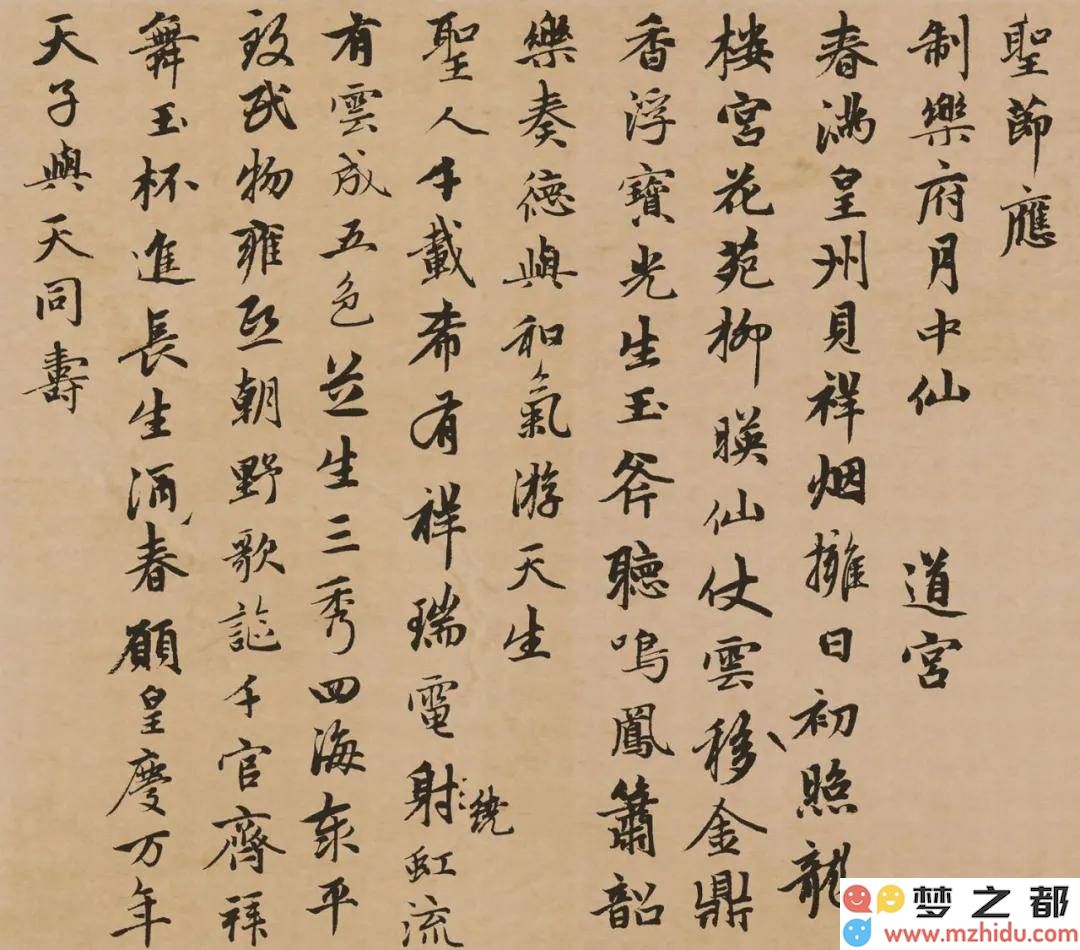 聖節應
制樂府月中仙 道宮
春滿皇州見祥烟擁日初照龍
樓宮花苑柳暎仙仗雲移金鼎
香浮寶光生玉斧聽鳴鳳簫韶
樂奏德與和氣游天生
聖人千載希有祥瑞電射繞虹流
有雲成五色並生三秀四海泰平
致民物雍熙朝野歌謳千官齊拜
舞玉杯進長生酒春願皇慶万年
天子與天同壽
梦之都
www.mzhidu.com